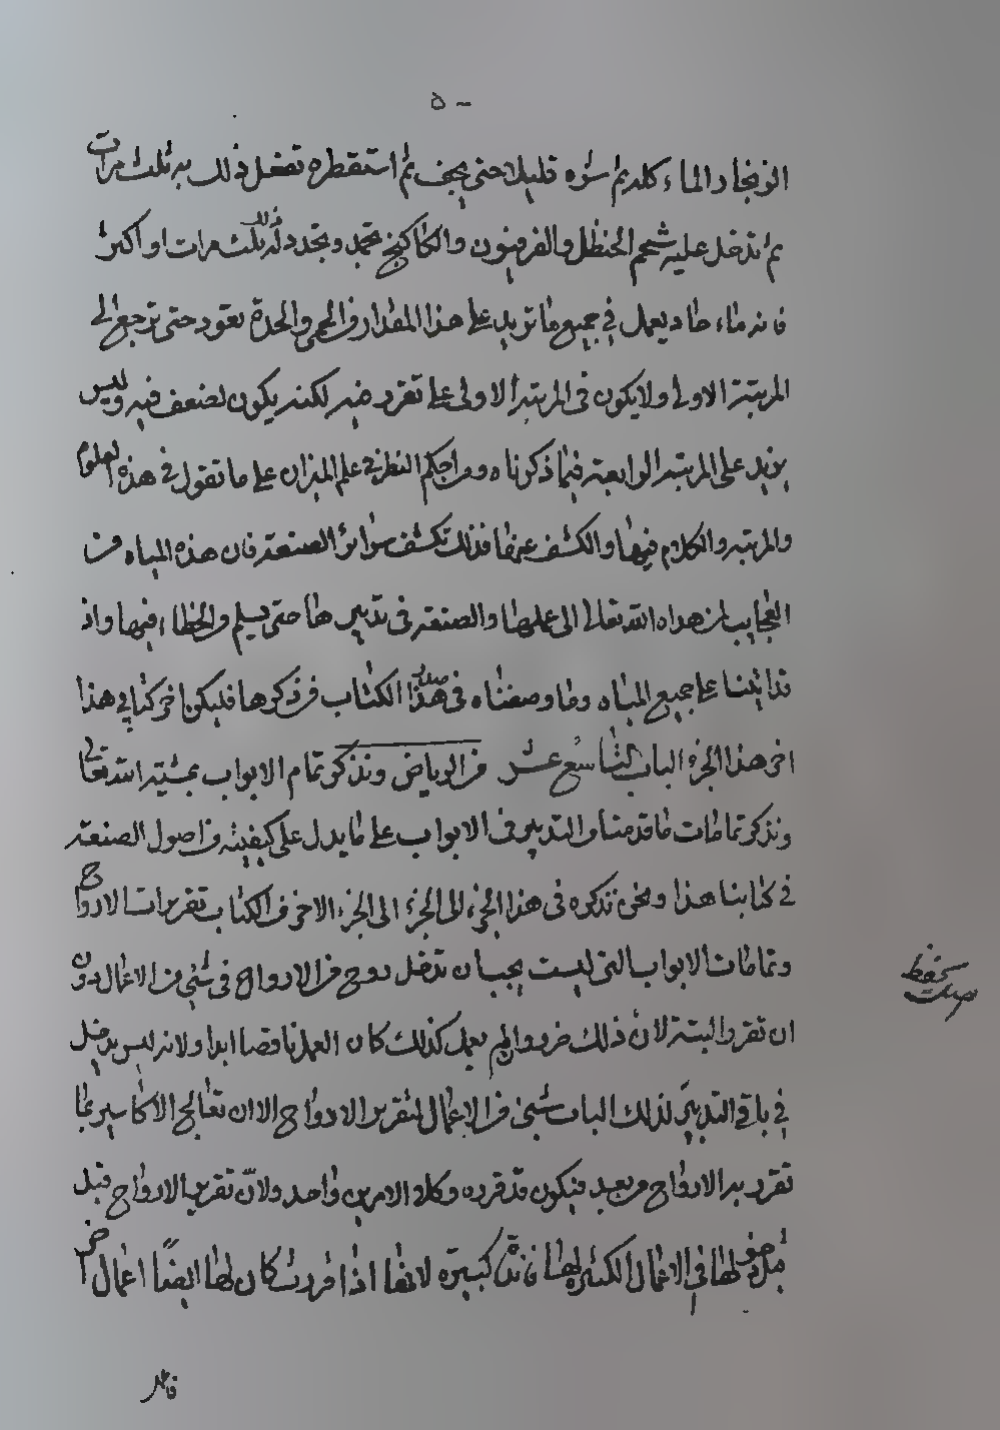 ٥٠
الزنجار والماء كله ثم شوه قليلا حتى يجف ثم استقطره تفعل ذلك به ثلث مرات
ثم تدخل عليه شحم الحنظل والفربيون والكاكنج تجمد وتجدد له ذلك ثلث مرات او اكثر
فانه ماء حاد يعمل في جميع ما تريد على هذا المقدار في الحمى والحدة تعود حتى ترجع الى
المرتبة الاولى ولا يكون فى المرتبة الاولى على تفرد منه لكنه يكون لضعف فيه وليس
يزيد على المرتبة الرابعة فيما ذكرناه ومن احكم النظر في علم الميزان على ما نقول في هذه العلوم
والمرتبه والكلام فيها والكشف عنها فذلك تكشف سرائر الصنعة فان هذه المياه من
العجايب لمن هداه الله تعالى الى عملها والصنعة فى تدبيرها حتى يسلم من الخطاء فيها واذ
قد اتينا على جميع المياه وما وصفناه فى صدر هذا الكتاب من ذكرها فليكن اخر كتابي هذا
اخر هذا الجزء الباب التاسع عشر من الرياض ونذكر تمام الابواب بمشية الله تعالى
ونذكر تمامات ما قدمنا من التدبير فى الابواب على ما يدل على كيفيته من اصول الصنعة
في كتابنا هذا ونحن نذكره فى هذا الجزء الى الجزء الى الجزء الاخر من الكتاب تقريرات الارواح
وتمامات الابواب التى ليست يجب ان تدخل روح من الارواح فى شئ من الاعمال دون
ان تقر البتة لان ذلك ضرر وان لم يعمل كذلك كان العمل ناقصا ابدا ولانه ليس يدخل
في باقي التدبير لذلك الباب شئ من الاعمال لتقرير الارواح الا ان تعالج الاكاسير بما
تقرر به الارواح من بعد فيكون قد قرره وكلا الامرين واحد ولان تقرير الارواح قبل
لها في الاعمال الكثيره لها فائدة كبيرة لانها اذا قررت كان لها ايضا اعمال اخر